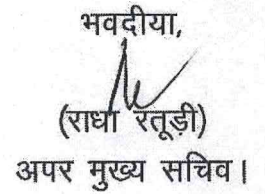 भवदीया,
(राधा रतूड़ी)
अपर मुख्य सचिव।